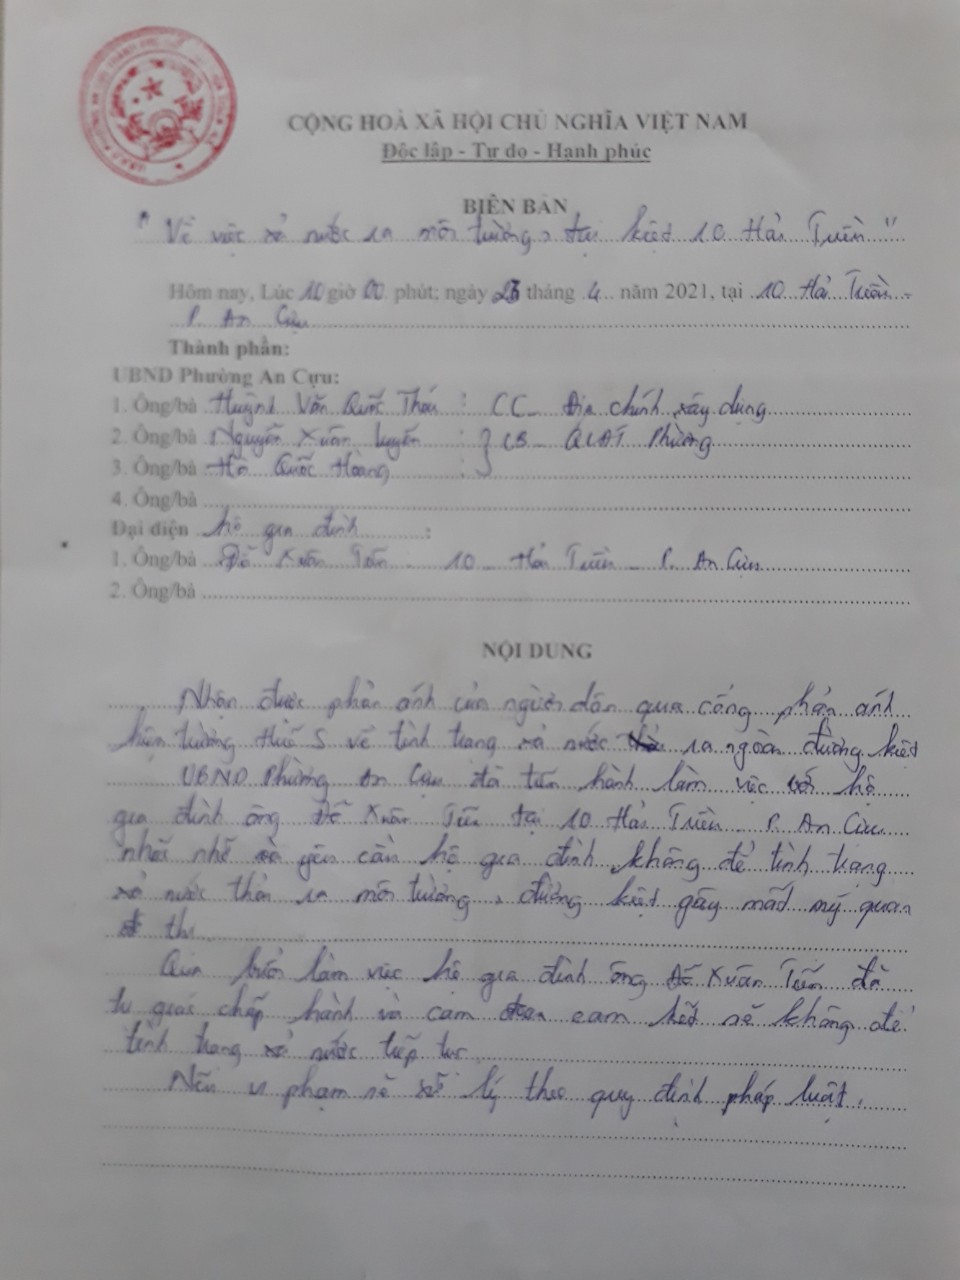 CỘNG HOÀ XÃ HỘI CHỦ NGHĨA VIỆT NAM
Độc lập - Tự do - Hạnh phúc
BIÊN BẢN
" Về việc xả nước ra môi trường, tại kiệt 10 Hải Triều "
Hôm nay, Lúc 10 giờ 00 phút; ngày tháng 4 năm 2021, tại 10 Hải Triều -
P. An Cựu
Thành phần:
UBND Phường An Cựu:
1. Ông/bà Huỳnh Văn Quốc : CC - Địa chính xây dựng
2. Ông/bà Nguyễn Xuân : } CB - QLĐT Phường
3. Ông/bà Hồ Quốc Hoàng :
4. Ông/bà
Đại diện hộ gia đình :
1. Ông/bà Đỗ Xuân Tiến - 10 - Hải Triều - P. An Cựu
2. Ông/bà
NỘI DUNG
Nhận được phản ánh của người dân qua cổng phản ánh
hiện trường Huế S về tình trạng xả nước ra ngoài đường kiệt
UBND Phường An Cựu đã tiến hành làm việc với hộ
gia đình ông Đỗ Xuân Tiến tại 10 Hải Triều - P. An Cựu
nhắc nhở và yêu cầu hộ gia đình không để tình trạng
xả nước thải ra môi trường, đường kiệt gây mất mỹ quan
đ thị
Qua buổi làm việc hộ gia đình ông Đỗ Xuân Tiến đã
tự giác chấp hành và cam cam kết sẽ không để
tình trạng xả nước tiếp tục
Nếu vi phạm sẽ xử lý theo quy định pháp luật.